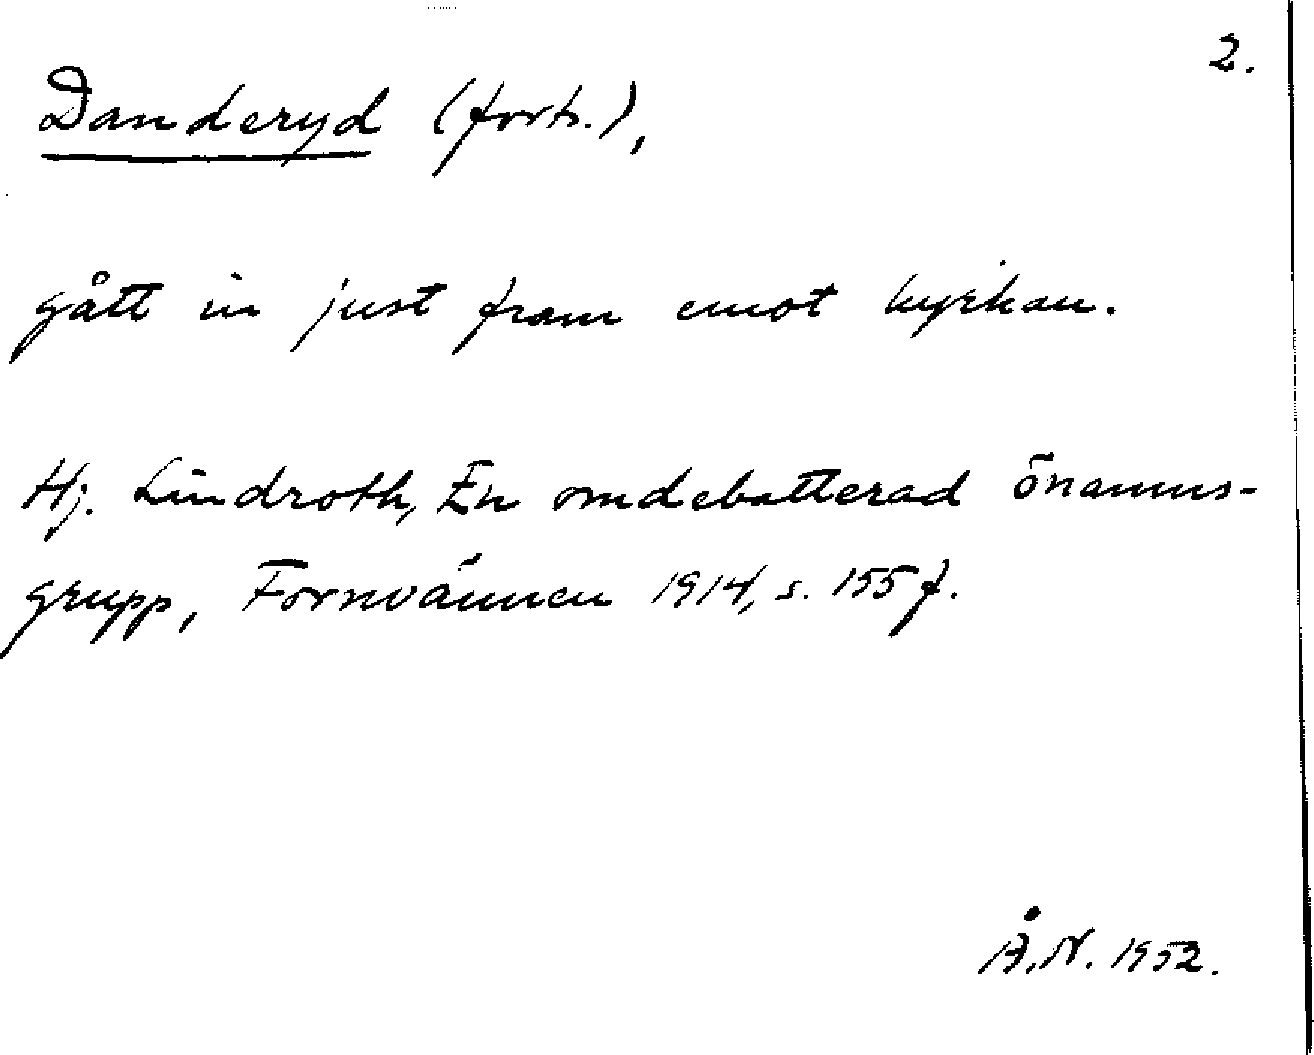 2.
Danderyd (forts.),
gått in just fram emot kyrkan.
Hj. Lindroth, En omdebatterad önamns-
grupp, Fornvännen 1914, s. 155 f.
Å.N. 1952.